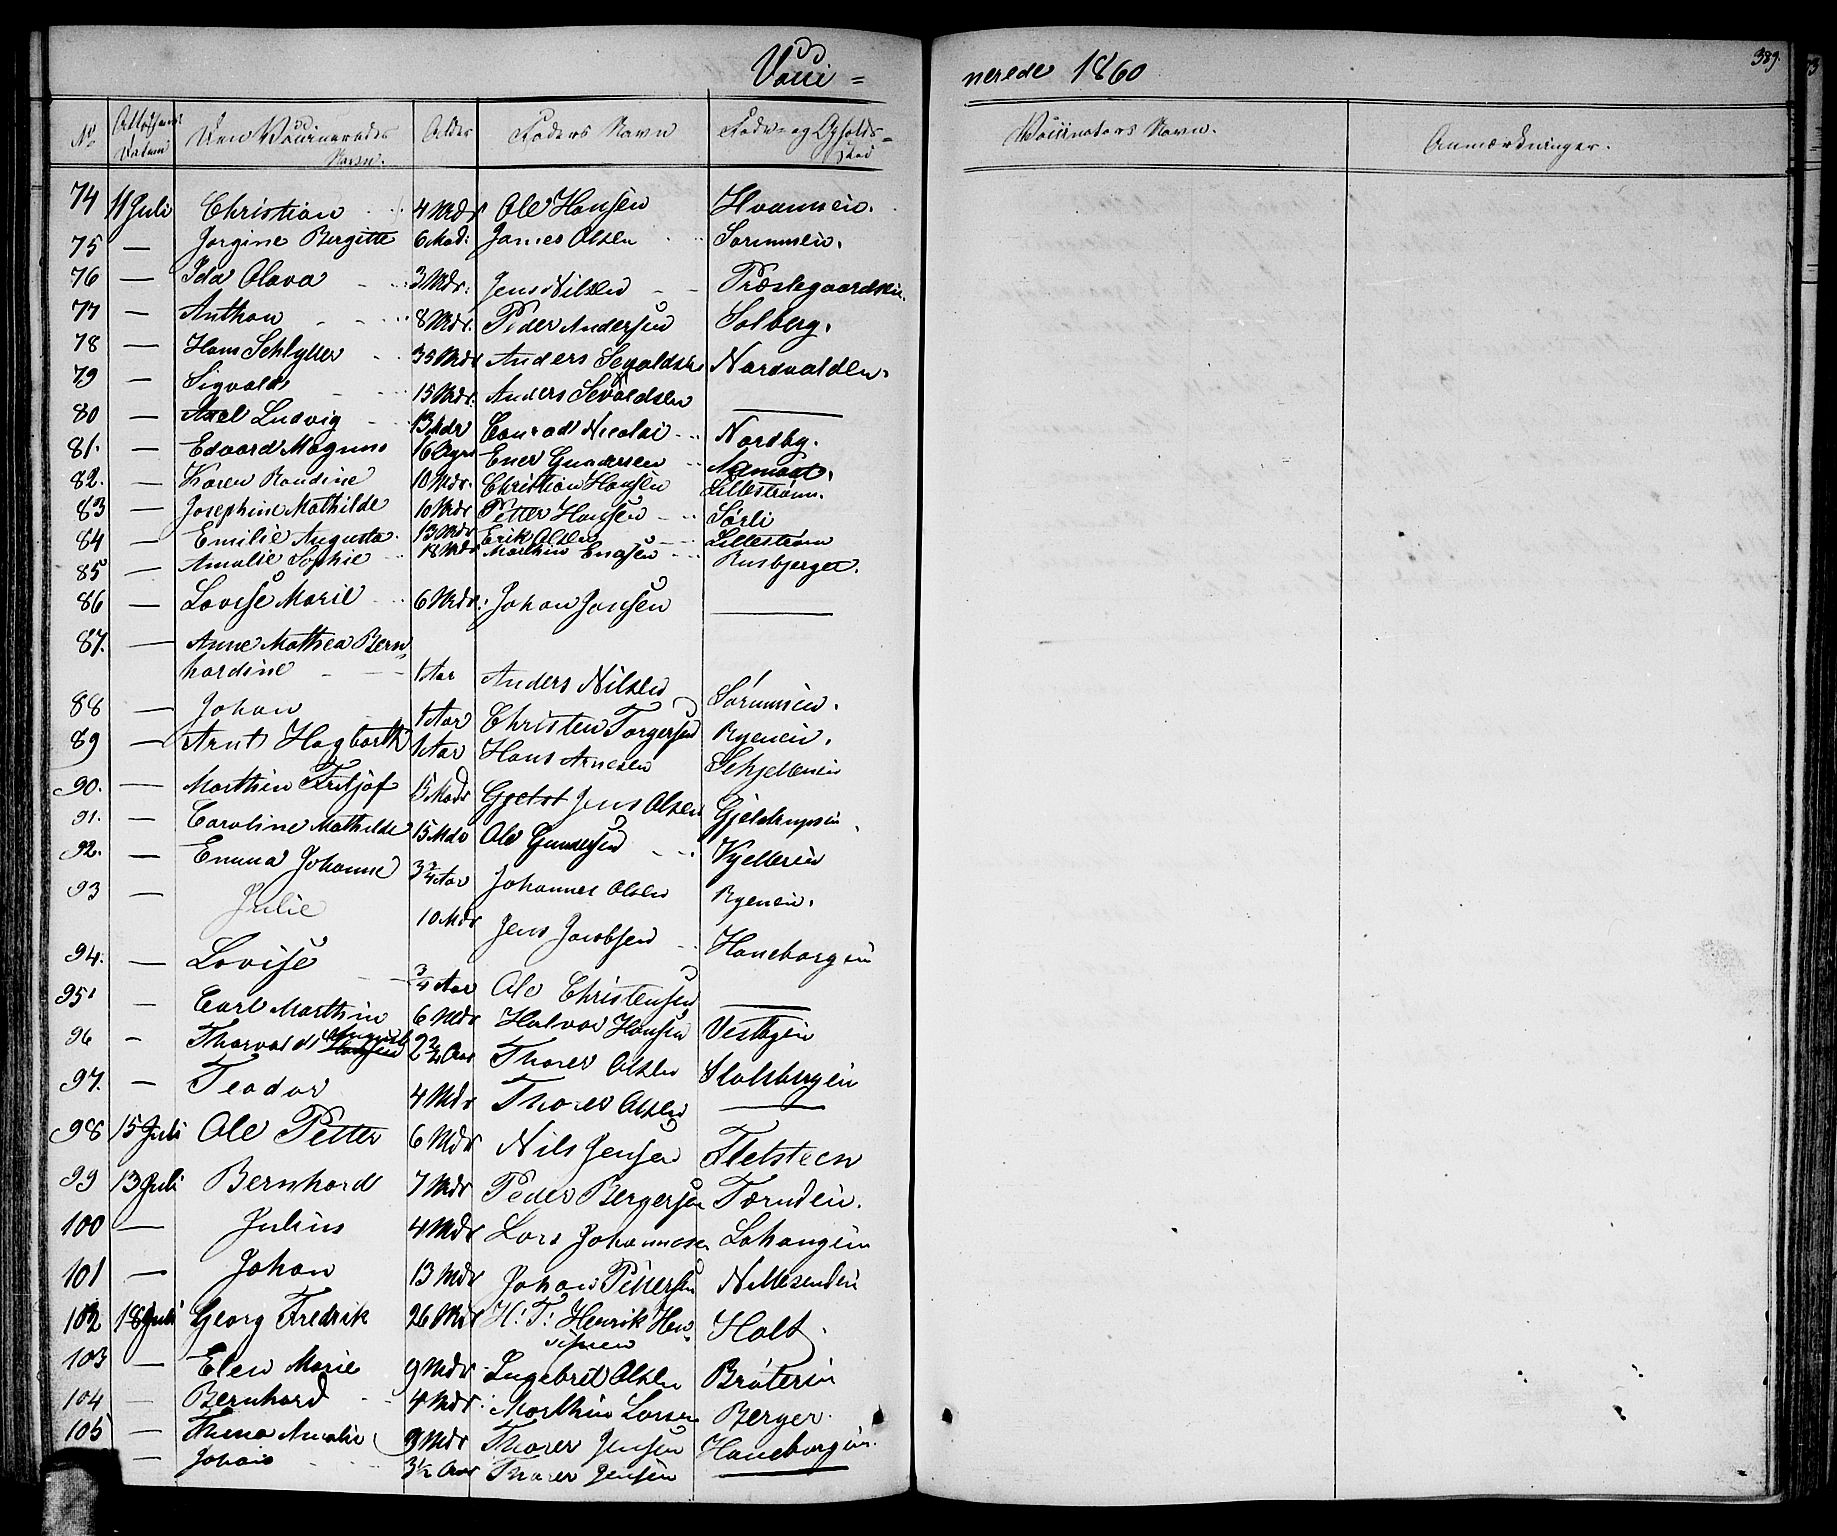 Vacci = nerede 1860
389.
No Attestens Datum Den Vaccineredes Navn. Alder Faders Navn Føde- og Opholds= sted Vaccinators Navn. Anmærkninger.
74 11 Juli Christian 4 Mdr Ole Hansen
75 — Jorgine Bergitte 6 Mdr: James Olsen
76 — Ida Olava 3 Mdr: Jens Nilsen Præstegaardsei.
77 — Anthon 8 Mdr. Peder Andersen Solberg.
78 — Hans Schlytter 35 Mdr Anders Sevaldsen Nordvalden.
79 — Sigvald 15 Mdr. Anders Sevaldsen ———
80 — Axel Ludvig 13 Mdr Conrad Nicolai Nordby.
81. — Edvard Magnus 16 Uger Ener Gundersen
82. — Karen Randine 10 Mdr. Christian Hansen Lillestrøm.
83 — Josephine Mathilde 10 Mdr Petter Hansen Sørli
84 — Emilie Augusta 13 Mdr Erik Olsen Lillestrøm
85 — Amalie Sophie 18 Mdr Marthin Enersen Rusbjerget.
86 — Lovise Marie 6 Mdr: Johan Jansen ———
87. — Anne Mathea Bern=
hardine 1 Aar Anders Nilsen
88 — Johan 1 Aar Christen Torgersen Ryenei.
89 — Arnt Hagbarth 1 Aar Hans Arnesen
90. — Marthin Fritjof 15 Mdr Gjelst Jens Olsen Gjelstrupei
91. — Caroline Mathilde 15 Mdr Ole Gundersen Kjellerei
92. — Emma Johanne 3 3/4 Aar Johannes Olsen Ryenei.
93 — Julie 10 Mdr Jens Jacobsen Haneborgei
94. — Lovise 3/4 Aar Ole Christensen ———
95. — Carl Marthin 6 Mdr Halvor Hansen Vestbyei
96 — Thorvald Hansen August 2 2/4 Aar Thorer Olsen Stalsbergei
97. — Teodor 4 Mdr Thorer Olsen ———
98 15 Juli Ole Petter 6 Mdr Nils Jensen Fletsteen
99 13 Juli Bernhard 7 Mdr Peder Bergersen Tærudei.
100 — Julius 4 Mdr Lars Johannesen Lahaugei
101 — Johan 13 Mdr Johan Pettersen
102 18 Juli Georg Fredrik 26 Mdr H: T: Henrik Hen=
Holt
103 — Elen Marie 9 Mdr Ingebret Olsen Bråterei
104 — Bernhard 4 Mdr. Marthin Larsen Berger.
105 — Amalie 9 Mdr Thorer Jensen Haneborgei.
— Johan 3 1/2 Aar Thorer Jensen ———